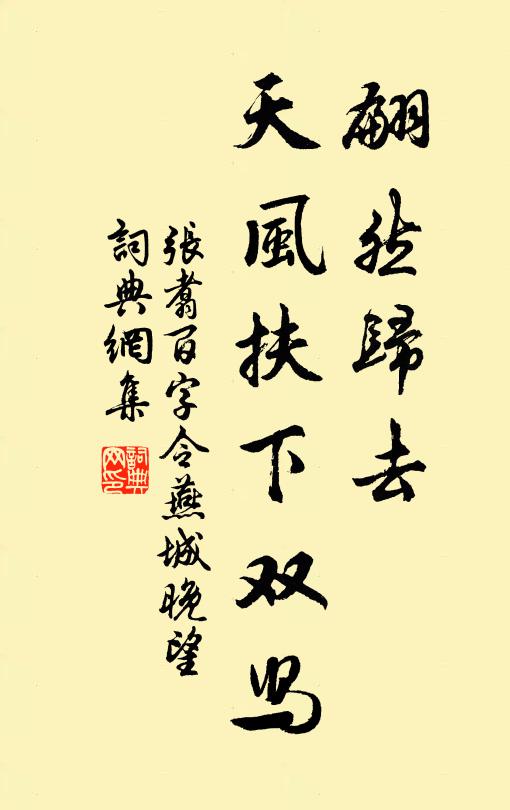 翩然歸去
天風扶下双舄
張翥百字令蕪城晚望
詞典網集
詞典网印